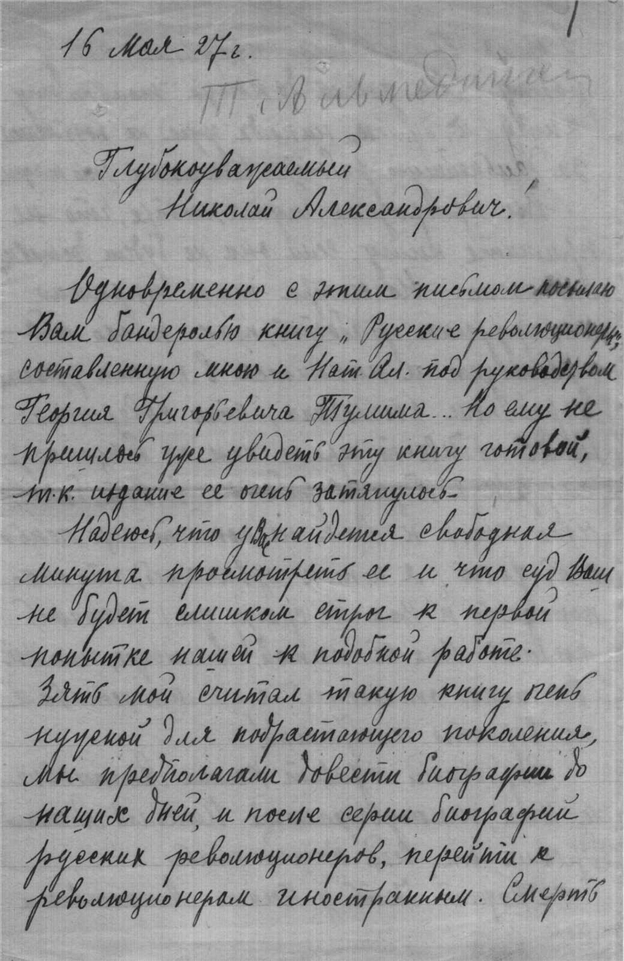 1
16 мая 27 г.
Глубокоуважаемый
Николай Александрович!
Одновременно с этим письмом посылаю
Вам бандеролью книгу „Русские революционеры",
составленную мною и Нат Ал. под руководством
Георгия Григорьевича Тумима... Но ему не
пришлось уже увидеть эту книгу готовой,
т.к. издание ее очень затянулось.
Надеюсь, что у Вас найдется свободная
минута просмотреть ее и что суд Ваш
не будет слишком строг к первой
попытке нашей к подобной работе.
Зять мой считал такую книгу очень
нужной для подрастающего поколения,
мы предполагали довести биографии до
наших дней, и после серии биографий
русских революционеров, перейти к
революционерам иностранным. Смерть